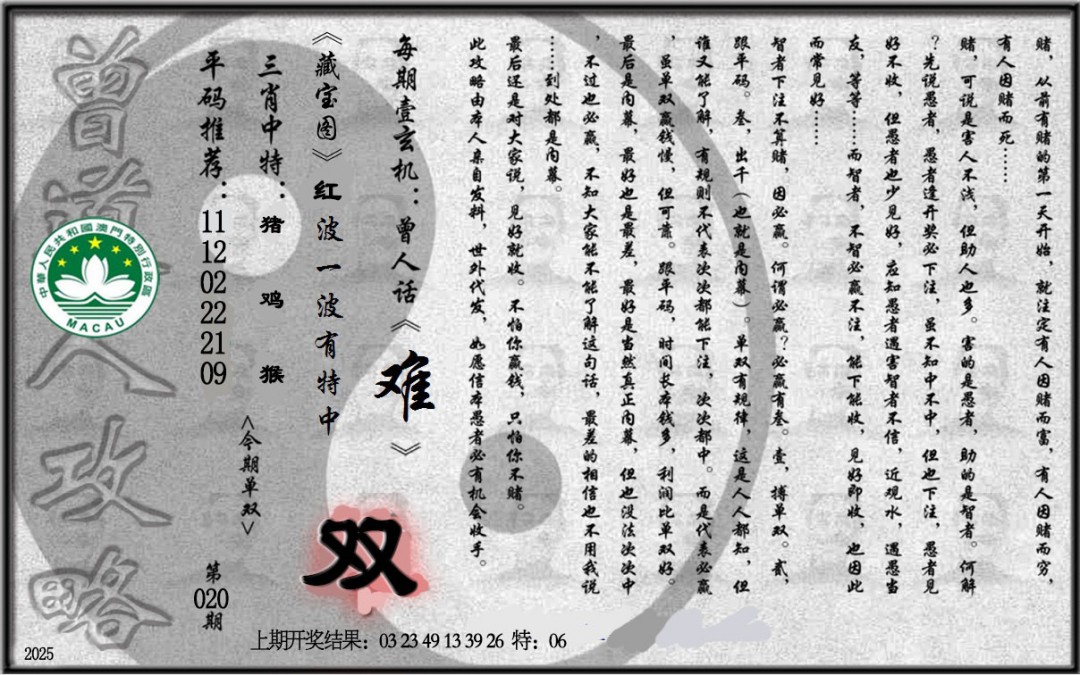 赌，从前有赌的第一天开始，就注定有人因赌而富，有人因赌而穷，
有人因赌而死……
赌，可说是害人不浅，但助人也多。害的是愚者，助的是智者。何解
？先说愚者，愚者逢开奖必下注，虽不知中不中，但也下注，愚者见
好不收，但愚者也少见好，应知愚者遇害智者不信，近观水，遇愚当
友，等等……而智者，不智必赢不注，能下能收，见好即收，也因此
而常见好……
智者下注不算赌，因必赢。何谓必赢？必赢有叁。壹，搏单双。贰，
跟平码。叁，出千（也就是内幕）。单双有规律，这是人人都知，但
谁又能了解，有规则不代表次次都能下注，次次都中。而是代表必赢
，虽单双赢钱慢，但可靠。跟平码，时间长本钱多，利润比单双好。
最后是内幕，最好也是最差，最好是当然真正内幕，但也没法次次中
，不过也必赢，不知大家能不能了解这句话，最差的相信也不用我说
……到处都是内幕。
最后还是对大家说，见好就收。不怕你赢钱，只怕你不赌。
此攻略由本人亲自发料，世外代发，如愿信本愚者必有机会收手。
每期壹玄机：曾人话《难》
《藏宝图》红波一波有特中
双
三肖中特：猪 鸡 猴
<今期单双>
平码推荐：
11
12
02
22
21
09
第
020
期
曾道人攻略
中華人民共和國澳門特別行政區
MACAU
上期开奖结果：03 23 49 13 39 26 特：06
2025